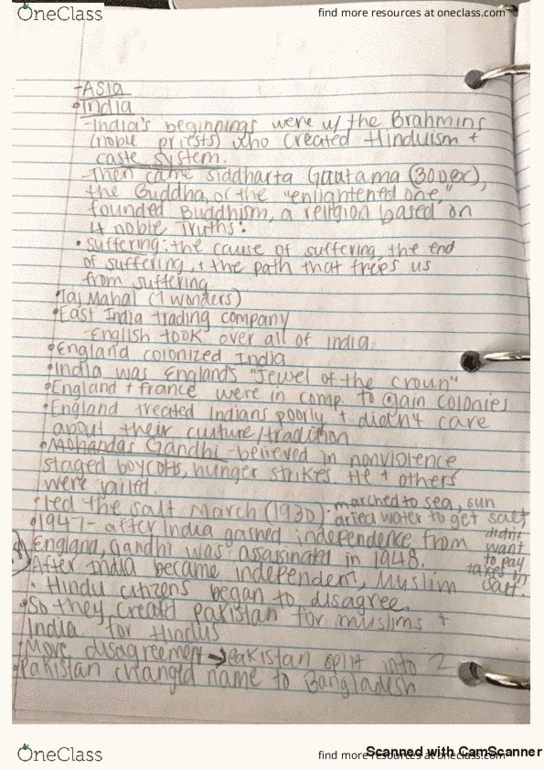 OneClass
find more resources at oneclass.com
-Asia
•India
-India's beginnings were w/ the Brahmins
(noble priests) who created Hinduism +
caste system.
-Then came Siddharta Gautama
the Buddha, or the "enlightened one,"
founded Buddhism, a religion based on
4 noble Truths:
• suffering: the cause of suffering, the end
of suffering, + the path that frees us
from suffering
•Taj Mahal (7 wonders)
•East India trading company
-English took over all of India.
•England colonized India
•India was Englands "Jewel of the croun"
•England + france were in comp. to gain colonies
•England treated Indians poorly + didn't care
about their culture/tradition
•Mohandas Gandhi-believed in nonviolence
staged boycotts, hunger strikes. He + others
were jailed.
•led the salt March (1930)-marched to sea, sun
dried water to get salt
didn't
want
to pay
taxes on
salt.
•1947- after India gained independence from
England, Gandhi was assasinated in 1948.
•After India became independent, Muslim
+ Hindu citizens began to disagree.
•So they created Pakistan for muslims +
India for Hindus
•More disagreement→Pakistan split into 2
•Pakistan changed name to Bangladesh
OneClass
find more resources at oneclass.com
Scanned with CamScanner